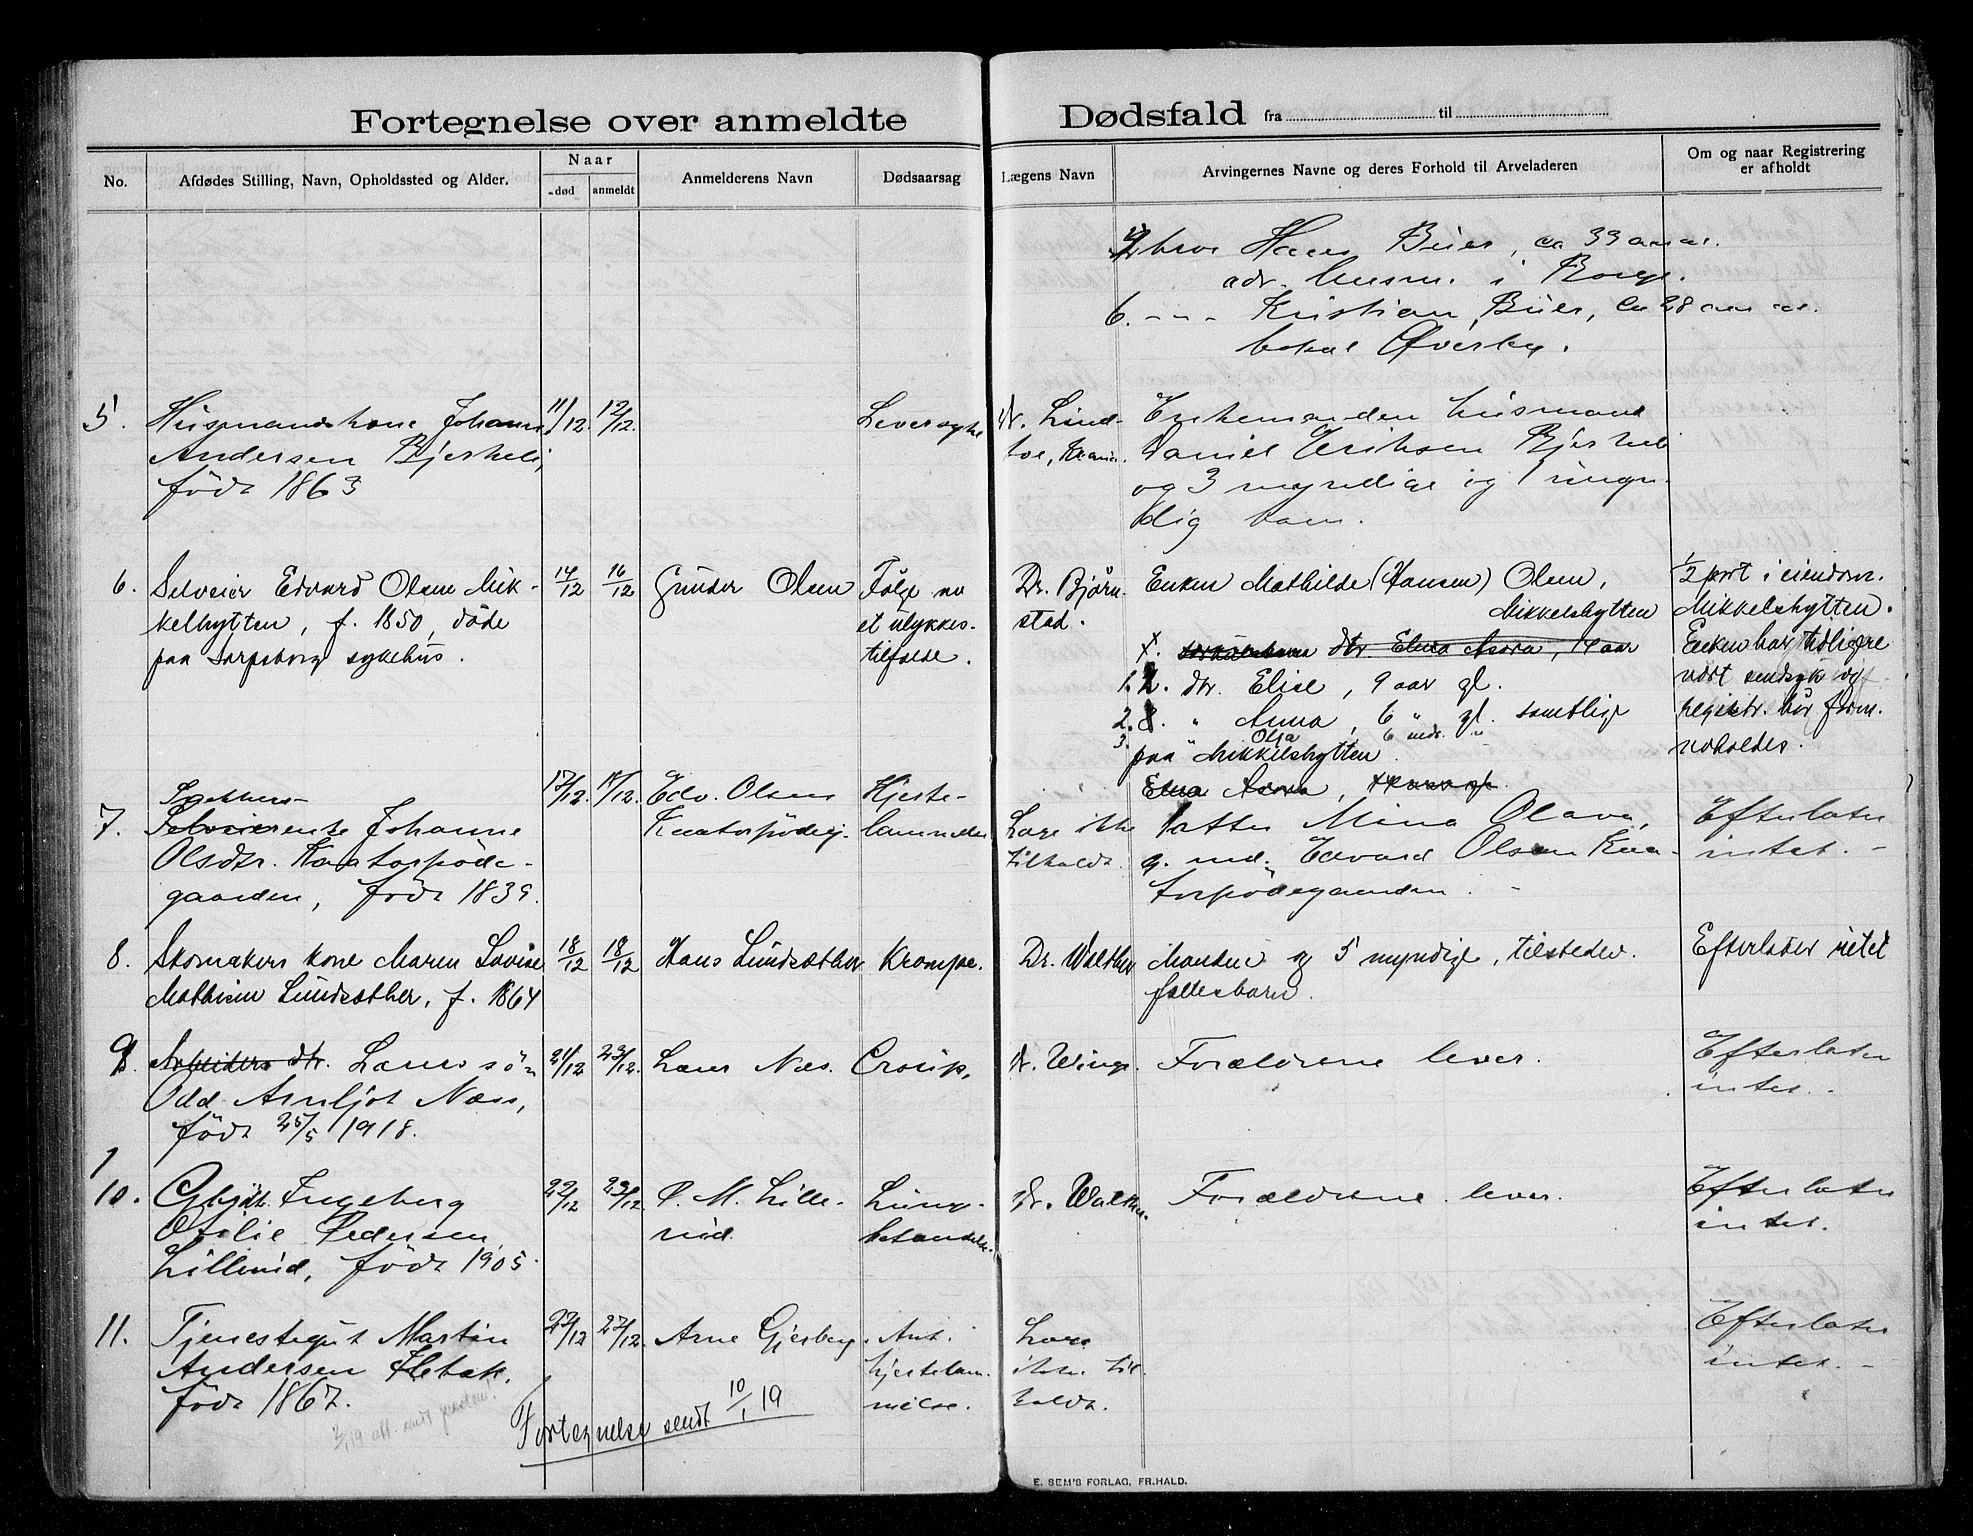 Fortegnelse over anmeldte Dødsfald fra til
No.
Afdødes Stilling, Navn, Opholdssted og Alder.
Naar
død
anmeldt
Anmelderens Navn
Dødsaarsag
Lægens Navn
Arvingernes Navne og deres Forhold til Arveladeren
Om og naar Registrering
er afholdt
bror Hans Buer, ca 39 aar
i Borge.
6. - " - Kristian Buer, ca 28 aar
Øverby.
5.
Husmandskone Johanne
Andersen Bjerkeli,
født 1863
11/12.
12/12.
Leversyke
dr. Lind-
toe, Krania.
Enkemanden husmand
Daniel Eriksen Bjerkeli
og 3 myndige og 1 umyn-
dig barn.
6.
Selveier Edvard Olsen Mik-
kelhytten, f. 1850, døde
paa Sarpsborg sykehus.
14/12
16/12
Gunder Olsen
Følge av
et ulykkes-
tilfælde.
Dr. Bjørn-
stad.
Enken Mathilde (Hansen) Olsen,
Mikkelshytten
dtr. Elna Asora, 14 aar
1. dtr. Elise, 9 aar gl.
2. " Anna, 6 " gl. samtlige
3. " Olga 6 mdr. "
paa Mikkelshytten
Elna Asora,
1/2 part i eiendom.
Mikkelshytten.
Enken har tidligere
vært sindsyk og
registr. bør frem-
holdes.
7.
Snekkers-
Selveierenke Johanne
Olsdtr. Knatorpøde-
gaarden, født 1839.
17/12.
17/12.
Edv. Olsen
Knatorpødeg.
Hjerte-
lammelse
Læge ikke
tilkaldt.
Datter Mina Olava,
g. md. Edvard Olsen Kna-
torpødegaarden. -
Efterlater
intet. -
8.
Skomakers kone Maren Lovise
Mathisen Lundsæther, f. 1864
18/12
18/12
Hans Lundsæther
Krampe.
Dr. Walther
Manden og 5 myndige, tilstedev.
fællesbarn.
Efterlater intet
9.
Arbeiders dtr. Lars søn
Odd Arnljot Næss,
født 25/5 1918.
21/12
23/12.
Lars Næs.
Croup,
dr. Winge.
Forældrene lever.
Efterlater
intet. -
10.
Gbrdt. Ingeborg
Otilie Pedersen
Lillerud, født 1905.
22/12
23/12.
P. M. Lille-
rud.
Lunge-
betændelse.
dr. Walther.
Forældrene lever.
Efterlater
intet.
11.
Tjenestegut Martin
Andersen Flebæk,
født 1867.
22/12
27/12.
Arne Gjerberg
Ant.
hjertelam-
melse.
Læge
ikke til-
kaldt.
Efterlater
intet. -
Fortegnelse sendt 10/1 19
E. SEM'S FORLAG, FR.HALD.